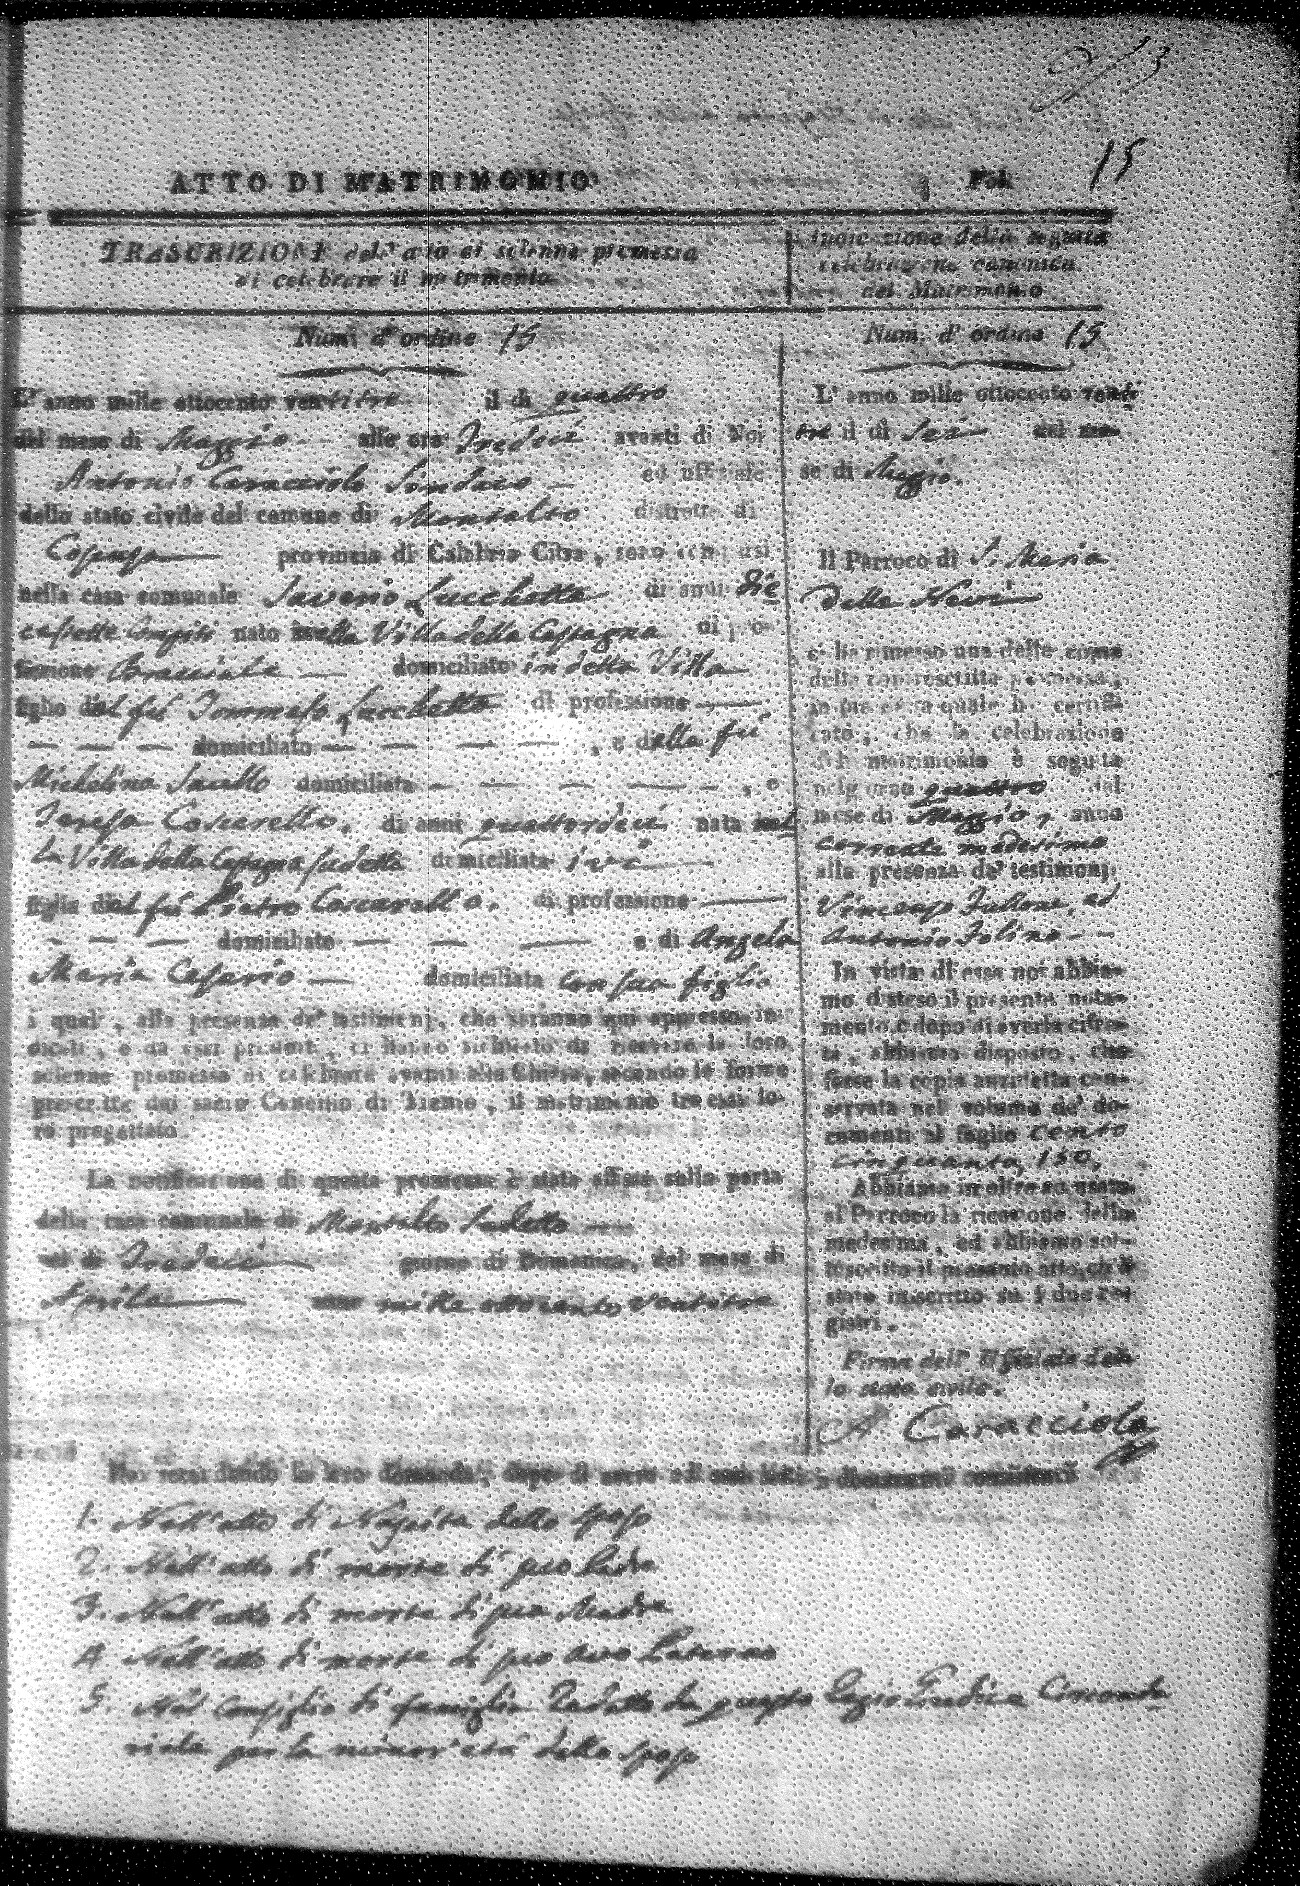 15
ATTO DI MATRIMONIO Fol.
TRASCRIZIONE dell' atto di solenne promessa
di celebrare il matrimonio
Indicazione della seguita
celebrazione canonica
del Matrimonio
Num. d' ordine 15
L' anno mille ottocento ventitre il di quattro
del mese di Maggio alle ore Tredeci avanti di Noi
Antonio Caracciolo Sindaco ed uffiziale
dello stato civile del comune di Montalto distretto di
Cosenza provincia di Calabria Citra, sono comparsi
nella casa comunale Saverio Lucchetta di anni die
cessette compiti nato nella Villa della Cassagna di pro-
fessione Bracciale domiciliato in detta Villa
figlio del fù Tommaso Lucchetta di professione
domiciliato , e della fù
Michelina domiciliata , e
Teresa Coscarello, di anni quattordeci nata nel
la Villa della Cassagna sudetta domiciliata ivi
figlia del fù Pietro Coscarello. di professione
domiciliato e di Angela
Maria Cesario domiciliata con sua figlia
i quali, alla presenza de' testimonj, che saranno qui appresso in-
dicati, e da essi prodotti, ci hanno richiesto di ricevere la loro
solenne promessa di celebrare avanti alla Chiesa, secondo le forme
prescritte dal sacro Concilio di Trento, il matrimonio tra essi lo-
ro progettato.
La notificazione di questa promessa è stata affissa sulla porta
della casa comunale di Montalto sudetto
nel di Tredeci giorno di Domenica, del mese di
Aprile mille ottocento ventitre
Num. d' ordine 15
L' anno mille ottocento venti
tre il di sei del me-
se di Maggio.
Il Parroco di S. Maria
della Nevi
ci ha rimesso una delle copie
della controscritta promessa,
in piè della quale ha certifi-
cato, che la celebrazione
del matrimonio è seguita
nel giorno quattro del
mese di Maggio, anno
corrente medesimo
alla presenza de' testimonj
Vincenzo Fullone, ed
Antonio Folino
In vista di essa noi abbia-
mo disteso il presente nota-
mento, e dopo di averla cifra-
ta, abbiamo disposto, che
fosse la copia anzidetta con-
servata nel volume de' do-
cumenti al foglio cento
cinquanta, 150.
Abbiamo in oltre accusato
al Parroco la ricezione della
medesima, ed abbiamo sot-
toscritto il presente atto, ch' è
stato inscritto su i due re-
gistri.
Firma dell' Uffiziale del-
lo stato civile.
A Caracciolo
Noi secondando la loro domanda, dopo di avere ad essi letti i documenti consistenti
1. Nell' atto di Nascita dello sposo
2. Nell' atto di morte di suo Padre
3. Nell' atto di morte di sua Madre
4. Nell' atto di morte di suo avo Paterno
5. Nel Consiglio di famiglia da questo Regio Giudice Circonda
riale per la minor età dello sposo